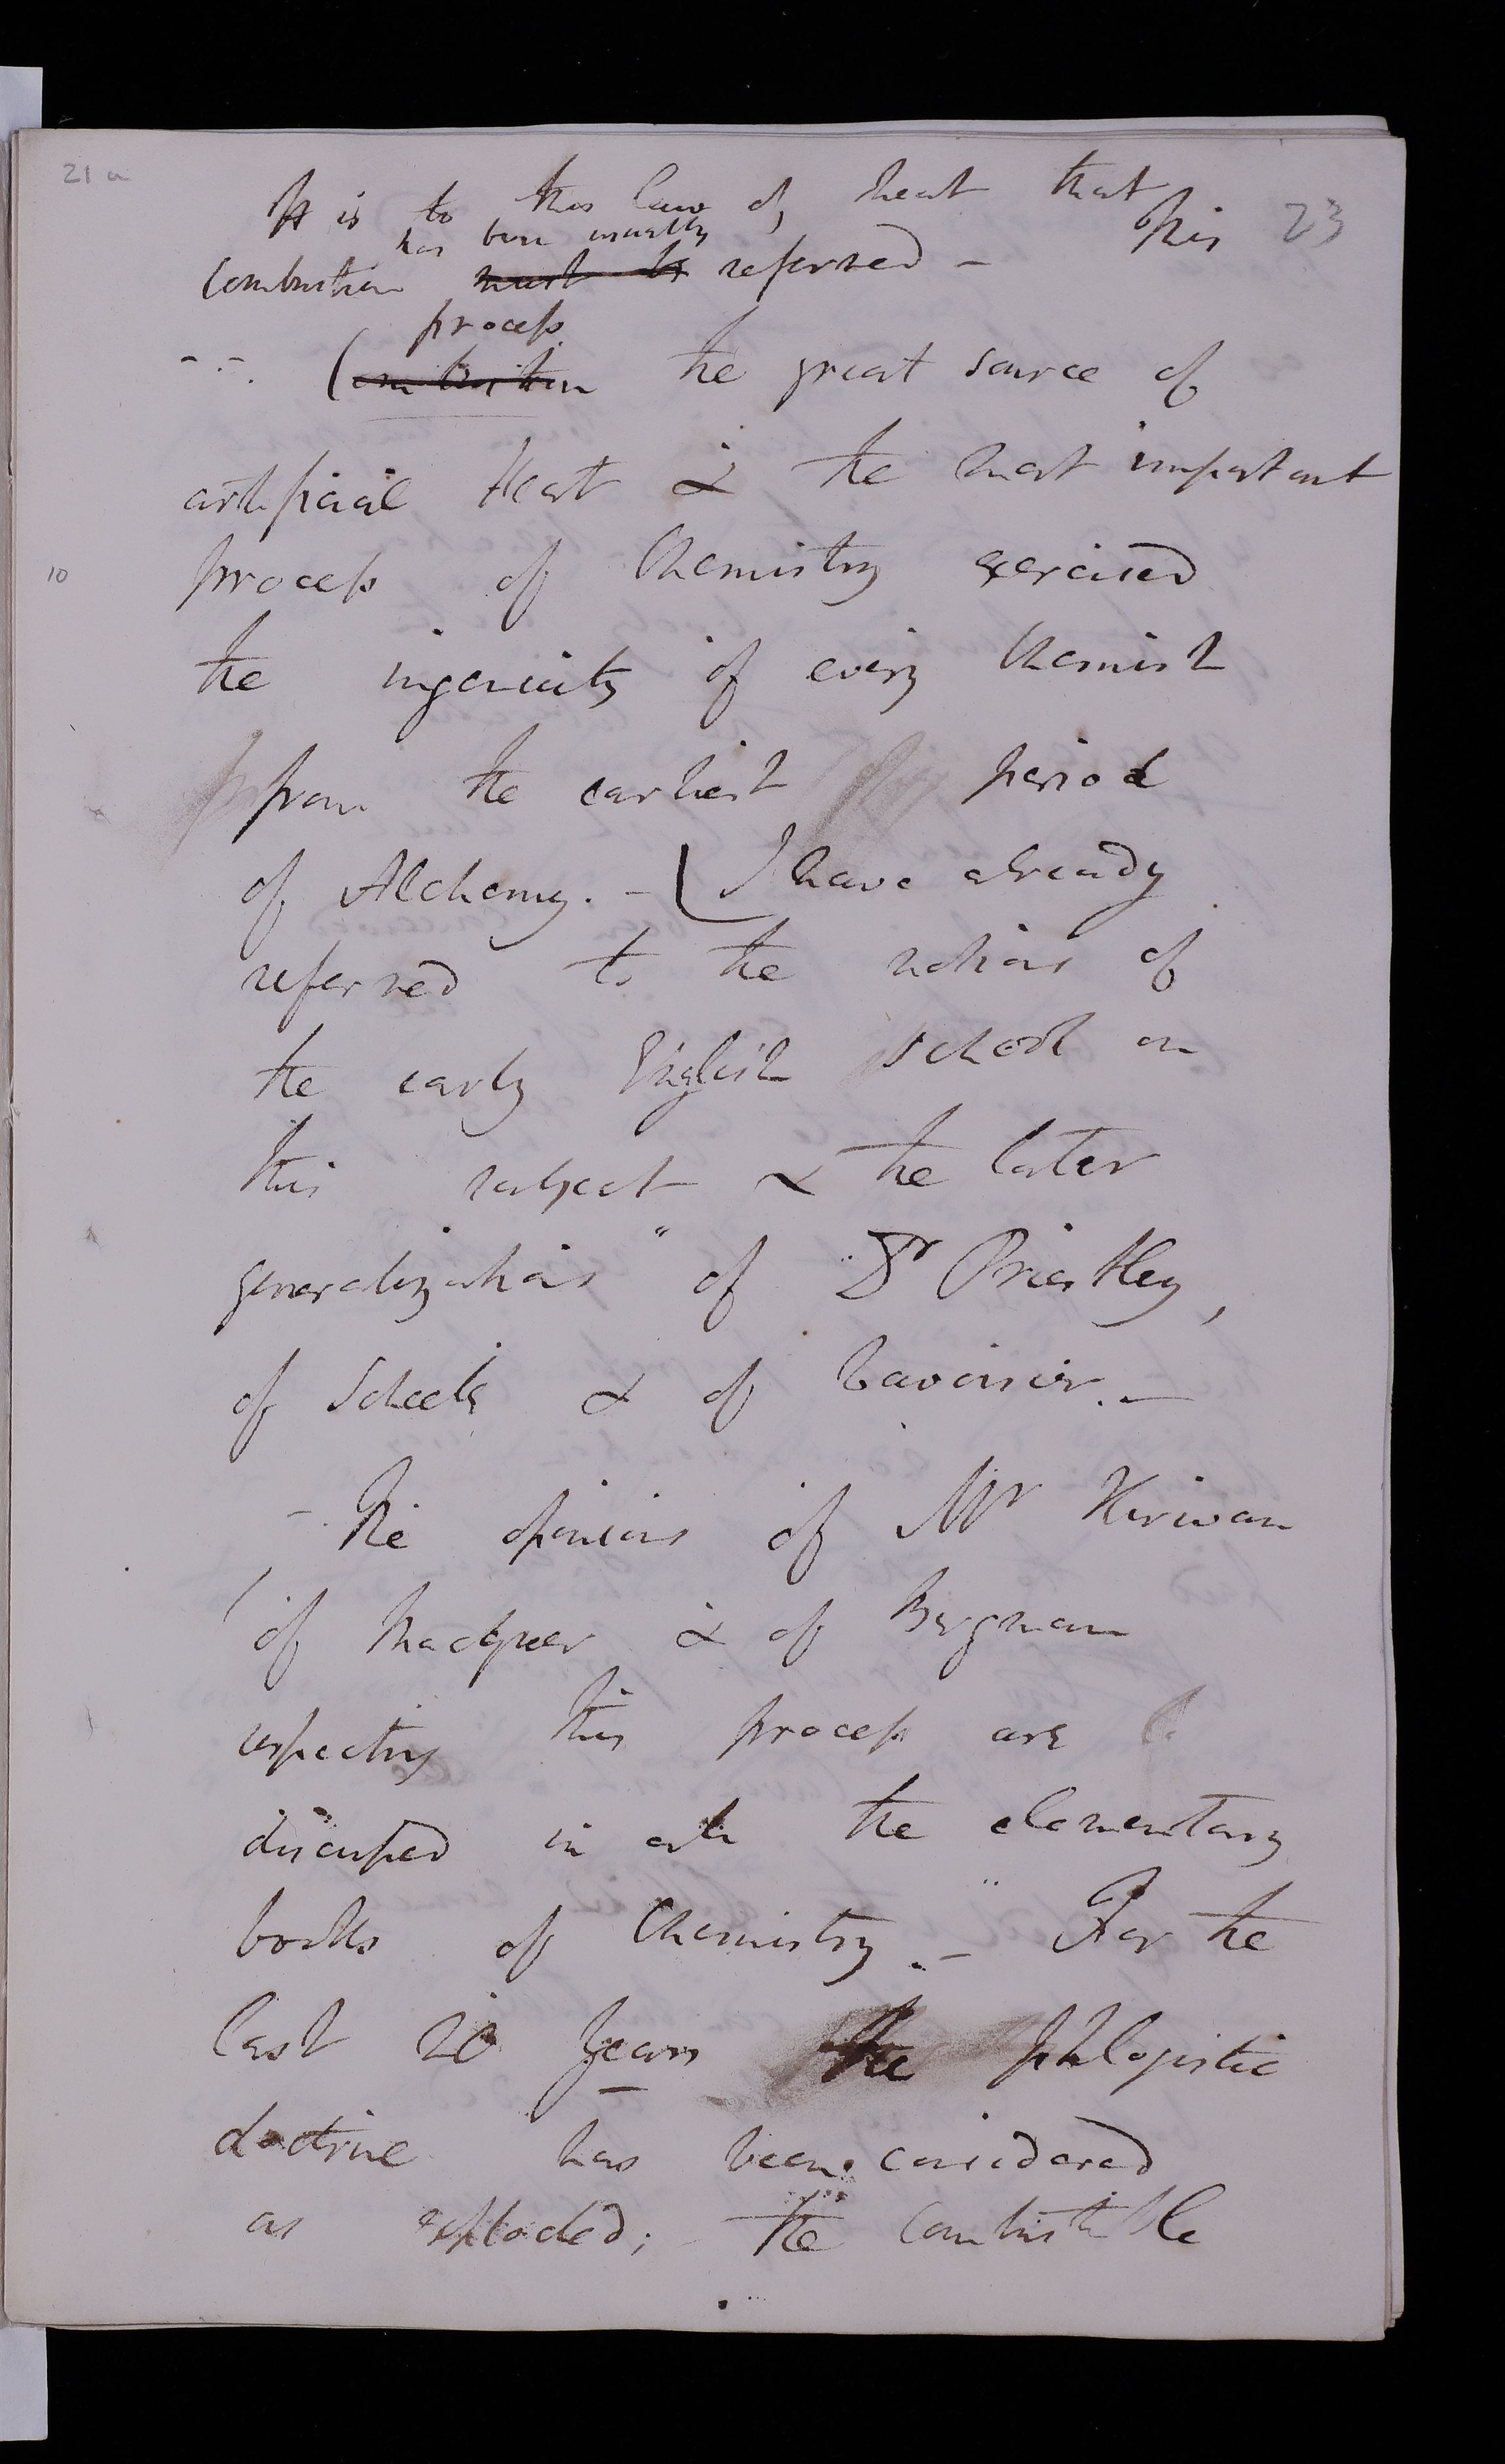 21 a
It is to this law of heat that
23
has been usually
This
Combustion must be referred –
process
Combustion the great source of
artificial Heat & the most important
10
process of Chemistry exercised
the ingenuity of every Chemist
from the earliest period
of Alchemy. – I have already
referred to the notions of
the early English school on
this subject & the later
generalizations of Dr Priestley,
of Scheele & of Lavoisier. –
– The opinions of Mr Kirwan
of Macquer & of Bergman
respecting this process are
discussed in all the elementary
books of Chemistry. – For the
last 20 years the phlogistic
doctrine has been considered
as exploded; the combustible